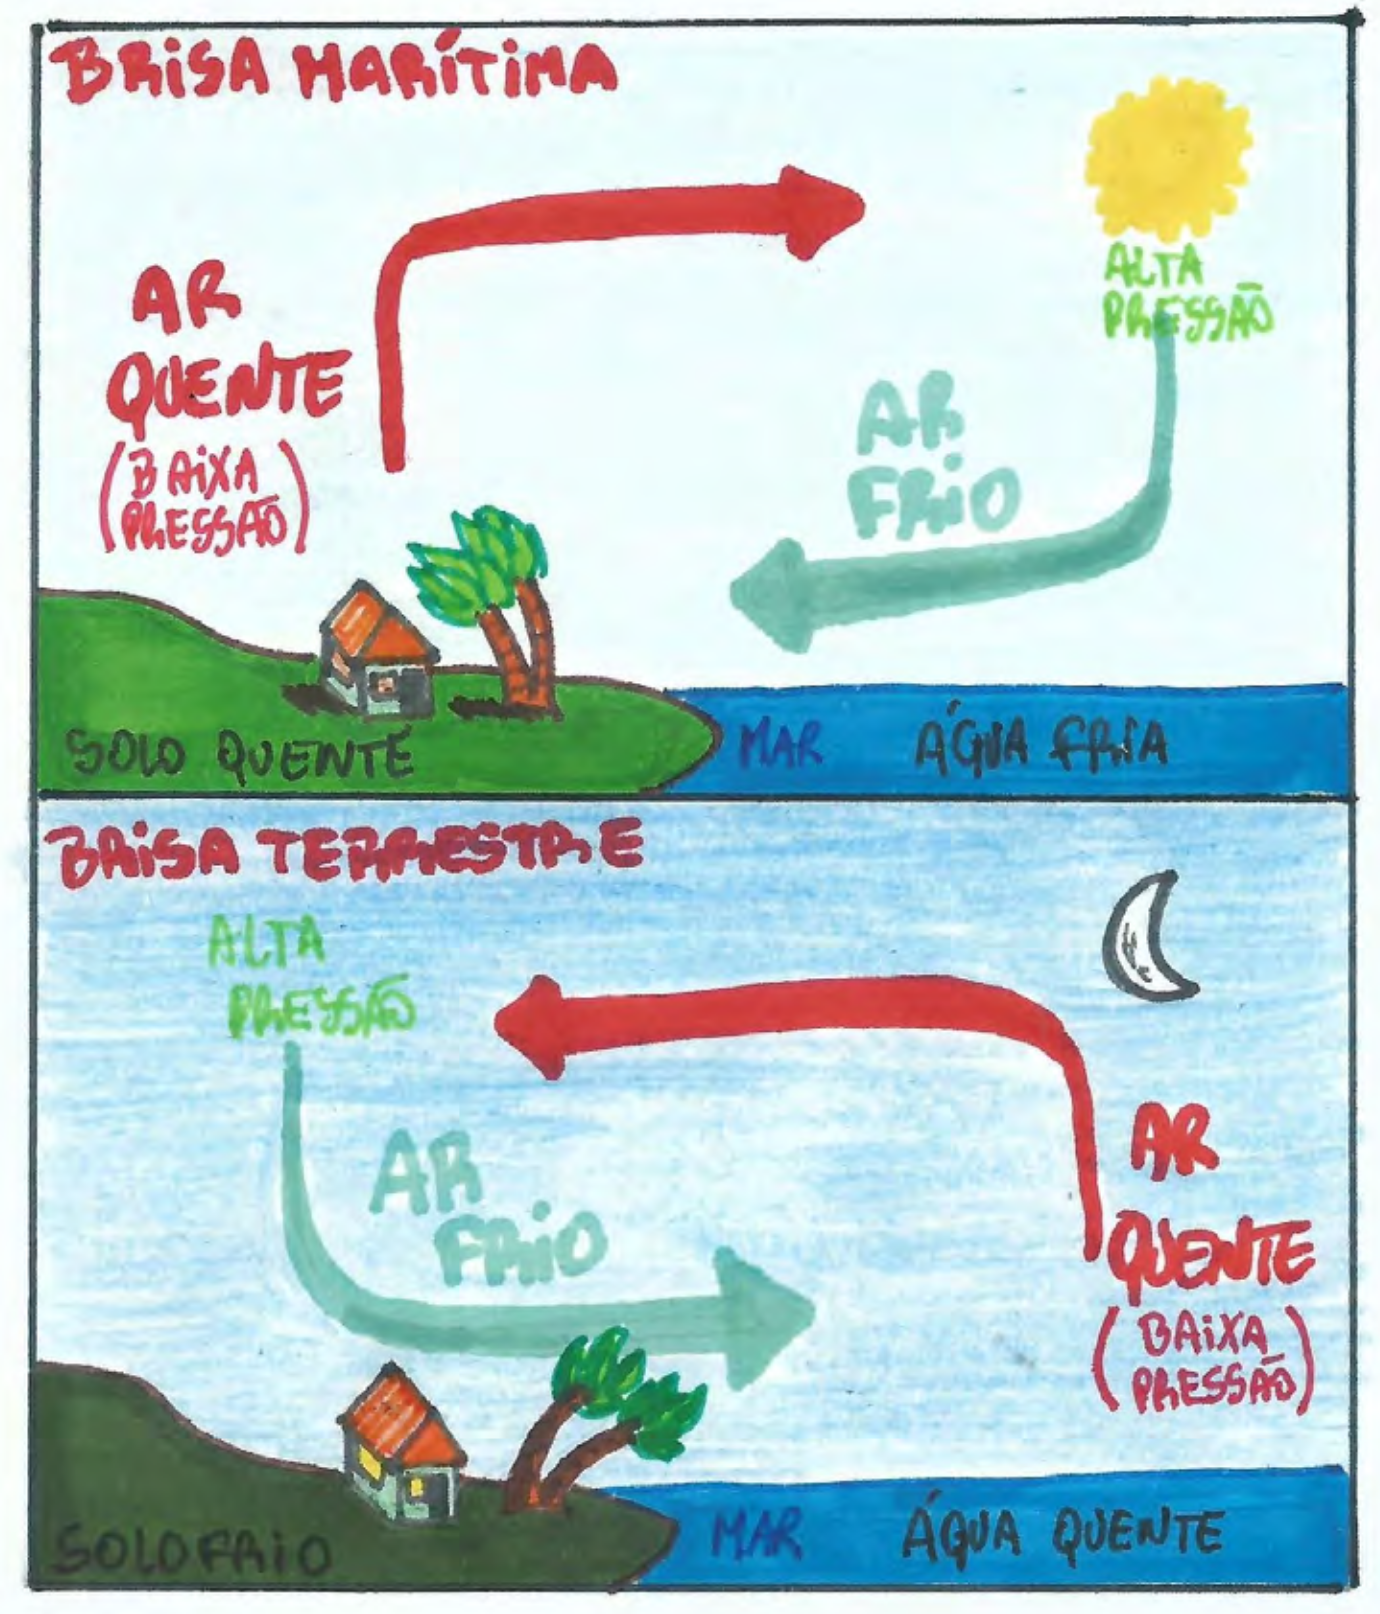 BRISA MARÍTIMA
ALTA
PRESSÃO
AR
QUENTE
(BAIXA
PRESSÃO)
AR
FRIO
SOLO QUENTE
MAR
ÁGUA FRIA
BRISA TERRESTRE
ALTA
PRESSÃO
AR
FRIO
AR
QUENTE
(BAIXA
PRESSÃO)
SOLO FRIO
MAR
ÁQUA QUENTE